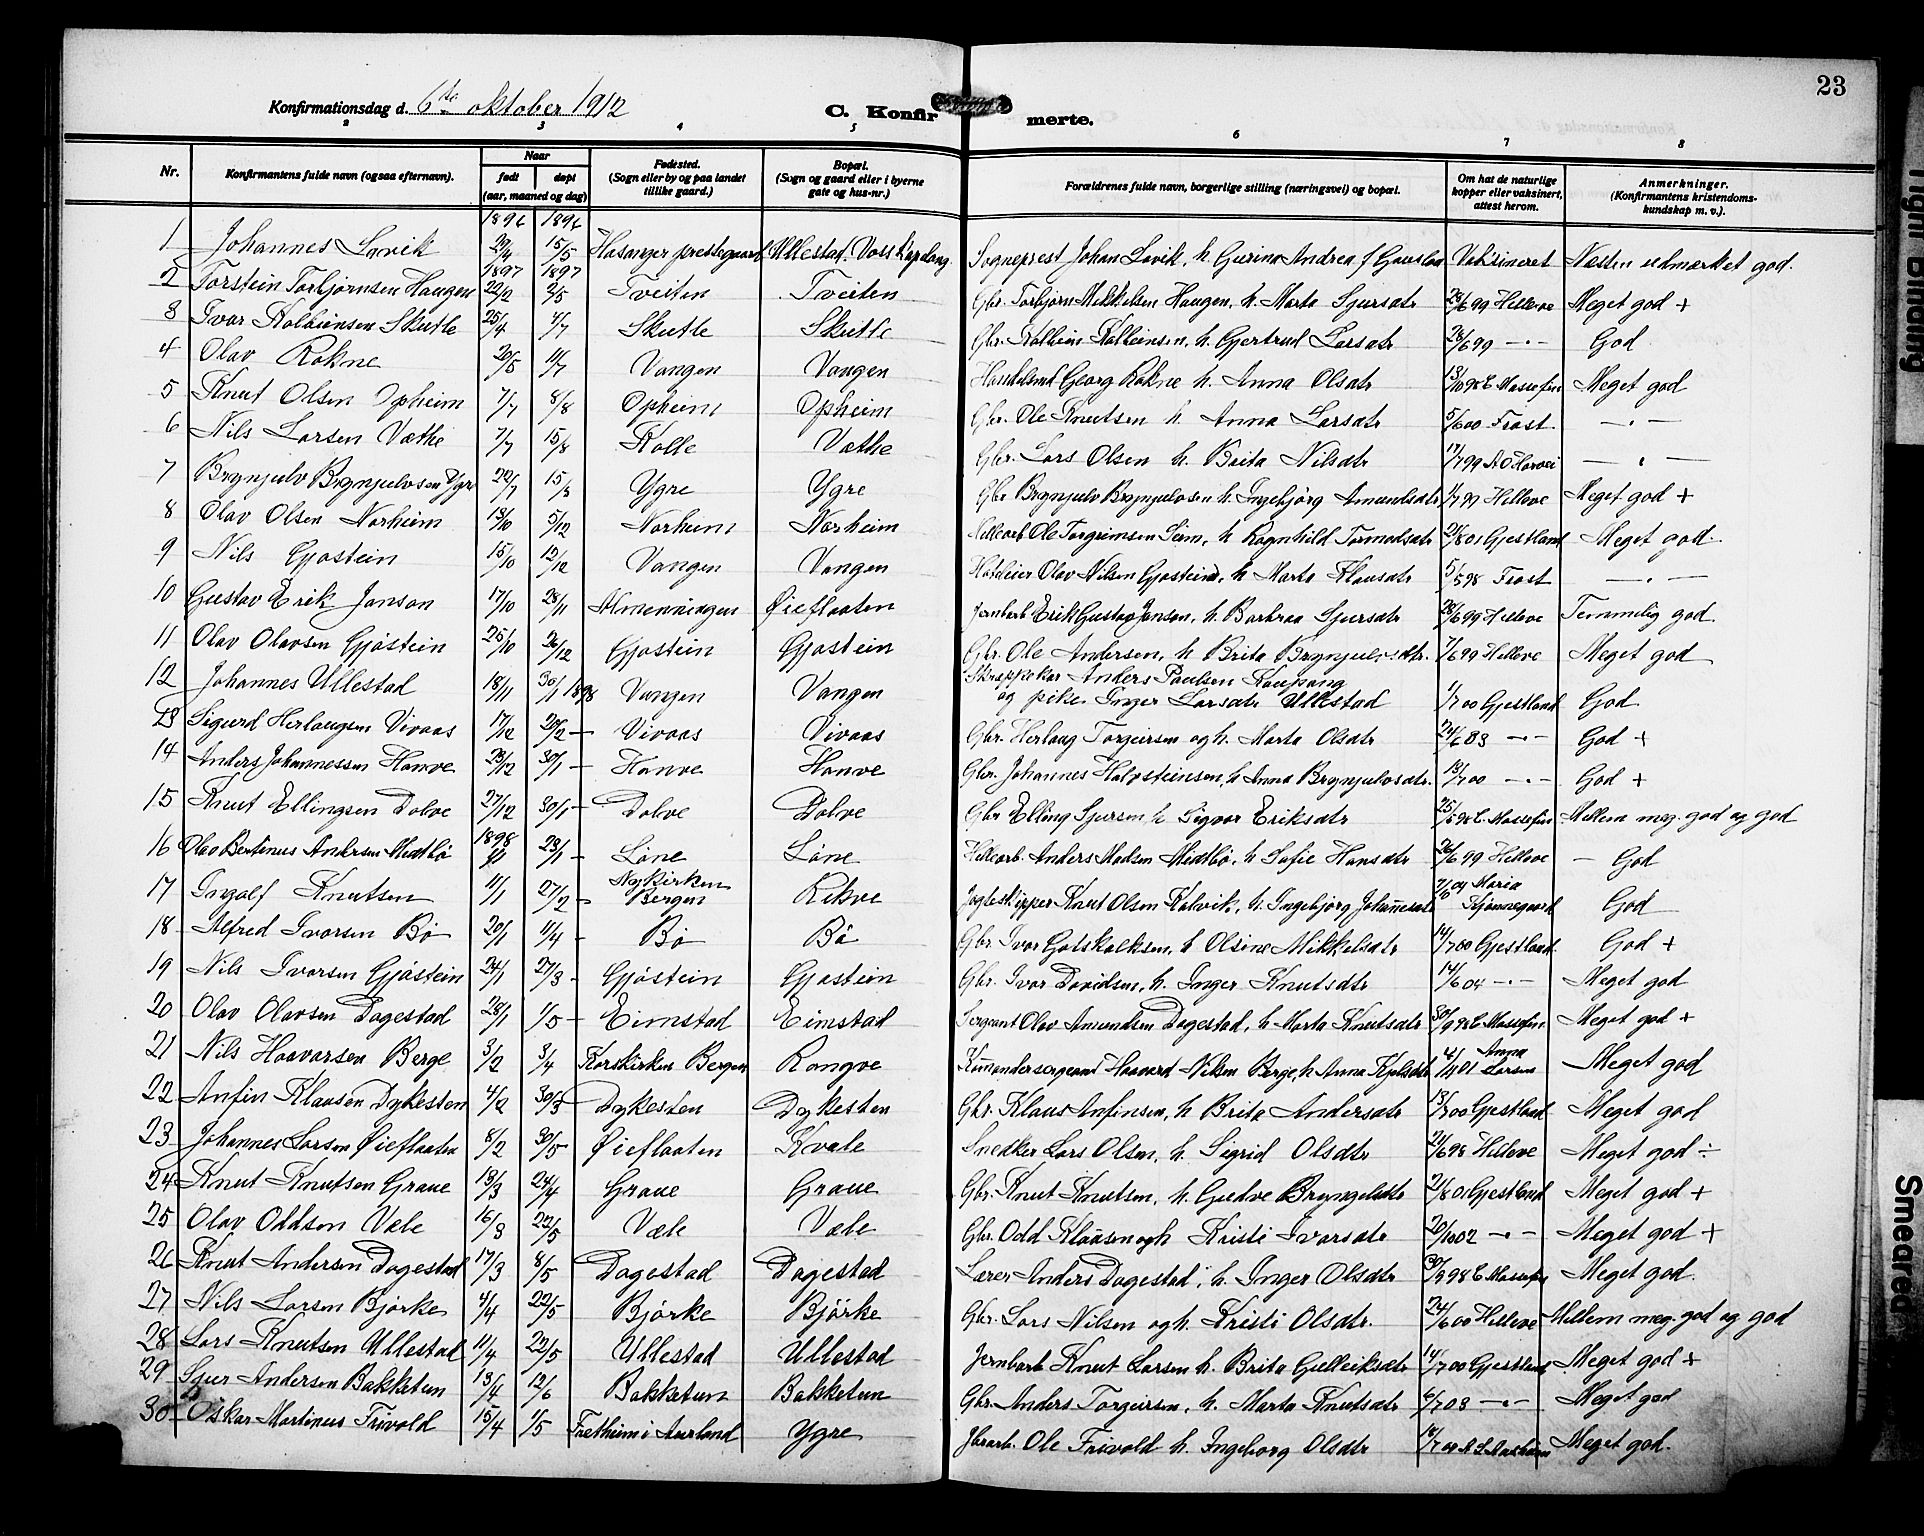 23
Konfirmationsdag d. 6te oktober 1912
C. Konfirmerte.
2 3 4 5 6 7 8
Nr. Konfirmantens fulde navn (ogsaa efternavn). Naar født døpt (aar, maaned og dag) Fødested. (Sogn eller by og paa landet tillike gaard.) Bopæl. (Sogn og gaard eller i byerne gate og hus-nr.) Forældrenes fulde navn, borgerlige stilling (næringsvei) og bopæl. Om hat de naturlige kopper eller vaksinert, attest herom. Anmerkninger. (Konfirmantens kristendoms-kundskap m. v.).
1896 1896
1 Johannes Lavik 29/4 15/5 Hosanger prestegaard Ullestad. Voss Sogneprest Johan Lavik, h. Gurina Andrea f Vaksineret Næsten udmærket god.
1897 1897
2 Torstein Torbjørnsen Haugen 22/2 2/5 Tveiten Tveiten Gbr. Torbjørn Mikkelsen Haugen, h. Marta Sjursdtr 26/6 99 Helleve Meget god +
3 Ivar Kolbeinsen Skutle 25/4 4/7 Skutle Skutle Gbr. Kolbein Kolbeinsen, h. Gjertrud Larsdtr 26/6 99 -"- God
4 Olav Rokne 20/5 11/7 Vangen Vangen Handelsmd Georg Rokne h. Anna Olsdtr 13/10 98 E. Massefin Meget god
5 Knut Olsen Opheim 7/7 8/8 Opheim Opheim Gbr. Ole Knutsen h. Anna Larsdtr 5/6 00 Frost -"-
6 Nils Larsen Væthe 7/7 15/8 Kolle Væthe Gbr. Lars Olsen h. Brita Nilsdtr 17/7 99 A O Horvei -"-
7 Brynjulv Brynjulvsen Ygre 22/7 15/8 Ygre Ygre Gbr Brynjulv Brynjulvsen h. Ingebjørg Amundsdtr 1/7 99 Helleve Meget god +
8 Olav Olsen Norheim 13/10 5/12 Norheim Norheim Hellearb Ole Torgrimsen Seim, h Ragnhild Tormodsdtr 21/8 01 Gjestland Meget god.
9 Nils Gjøstein 15/10 12/12 Vangen Vangen Hoteleier Olav Nilsen Gjøstein, h Marta Klausdtr 5/5 98 Frost -"-
10 Gustav Erik Janson 17/10 28/11 Almenningen Øieflaaten Jernbarb Erik Gustav Janson, h. Barbraa Sjursdtr 28/6 99 Helleve Temmelig god.
11 Olav Olavsen Gjøstein 25/10 26/12 Gjøstein Gjøstein Gbr. Ole Andersen, h Brita Brynjulvsdtr. 7/6 99 Helleve Meget god
12 Johannes Ullestad 18/11 30/1 1898 Vangen Vangen Skreppekar Anders Paulsen Kaupang
og pike Inger Larsdtr Ullestad 1/7 00 Gjestland God
13 Sigurd Herlaugsen Vivaas 17/12 20/2 - Vivaas Vivaas Gbr. Herlaug Torgeirsen og h. Marta Olsdtr 24/6 03 -"- God +
14 Anders Johannessen Hanve 23/12 30/1 - Hanve Hanve Gbr. Johannes Halvsteinsen, h Anna Brynjulvsdtr. 13/7 00 -"- God +
15 Knut Ellingsen Dolve 27/12 30/1 - Dolve Dolve Gbr Elling Sjursen h Sigvor Eriksdtr 25/5 98 E. Massefin Mellem meg. god og god
1898
16 Olav Bertinus Andersen Midtbø 23/1 - Løne Løne Hellearb. Anders Madsen Midtbø, h Sofie Hansdtr 26/6 99 Helleve - God
17 Ingolf Knutsen 11/1 27/2 - Nykirken Bergen Rekve Jagteskipper Knut Olsen Kalvik, h. Ingebjørg Johannesdtr Maria God
18 Alfred Ivarsen Bø 20/1 11/4 - Bø Bø Gbr. Ivar Gotskalksen, h Olsine Mikkelsdtr 14/7 00 Gjestland God +
19 Nils Ivarsen Gjøstein 24/1 27/3 - Gjøstein Gjøstein Gbr. Ivar Davidsen, h. Inger Knutsdtr 14/6 04 -"- Meget god
20 Olav Olavsen Dagestad 28/1 1/5 - Eimstad Eimstad Sergeant Olav Amundsen Dagestad, h Marta Knutsdtr 30/9 98 E. Massefin Meget god +
21 Nils Haavarsen Berge 3/2 3/4 Korskirken Bergen Rongve Komandersergeant Haavard Nilsen Berge, h Anna Kjelsdtr 4/11 01 Anna Larsen Meget god
22 Anfin Klausen Dykesten 4/2 30/3 Dykesten Dykesten Gbr. Klaus Anfinsen, h Brita Andersdtr 13/7 00 Gjestland Meget god
23 Johannes Larsen Øieflaaten 8/2 30/5 Øieflaaten Kvale Snedker Lars Olsen, h. Sigrid Olsdtr 24/6 98 Helleve Meget god ÷
24 Knut Knutsen Graue 13/3 24/4 Graue Graue Gbr. Knut Knutsen, h. Gudve Bryngelsdtr 21/8 01 Gjestland Meget god +
25 Olav Oddsen Væle 16/3 22/5 Væle Væle Gbr. Odd Klausen og h Kristi Ivarsdtr 20/10 02 -"- Meget god +
26 Knut Andersen Dagestad 17/3 8/5 Dagestad Dagestad Lærer Anders Dagestad, h. Inger Olsdtr 30/9 98 E. Massefin Meget god.
27 Nils Larsen Bjørke 4/4 22/5 Bjørke Bjørke Gbr. Lars Nilsen og h. Kristi Olsdtr. 24/6 00 Helleve Mellem meg. god og god
28 Lars Knutsen Ullestad 11/4 22/5 Ullestad Ullestad Jernbarb Knut Larsen h. Brita Gulleiksdtr 14/7 00 Gjestland Meget god +
29 Sjur Andersen Bakketun 13/4 12/6 Bakketun Bakketun Gbr. Anders Torgeirsen, h. Marta Knutsdtr 6/7 03 -"- Meget god
30 Oskar Martinus Trivold 15/4 1/5 Fretheim i Aurland Ygre Jbrarb. Ole Trivold h. Ingeborg Olsdtr Meget god.
Tight Binding
Smeared